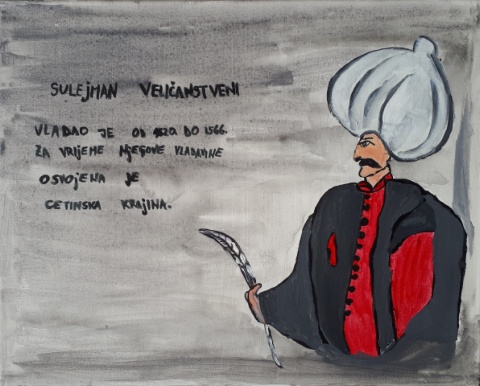 SULEJMAN VELIČANSTVENI
VLADAO JE OD 1520. DO 1566.
ZA VRIJEME NJEGOVE VLADAVINE
OSVOJENA JE
CETINSKA KRAJINA.